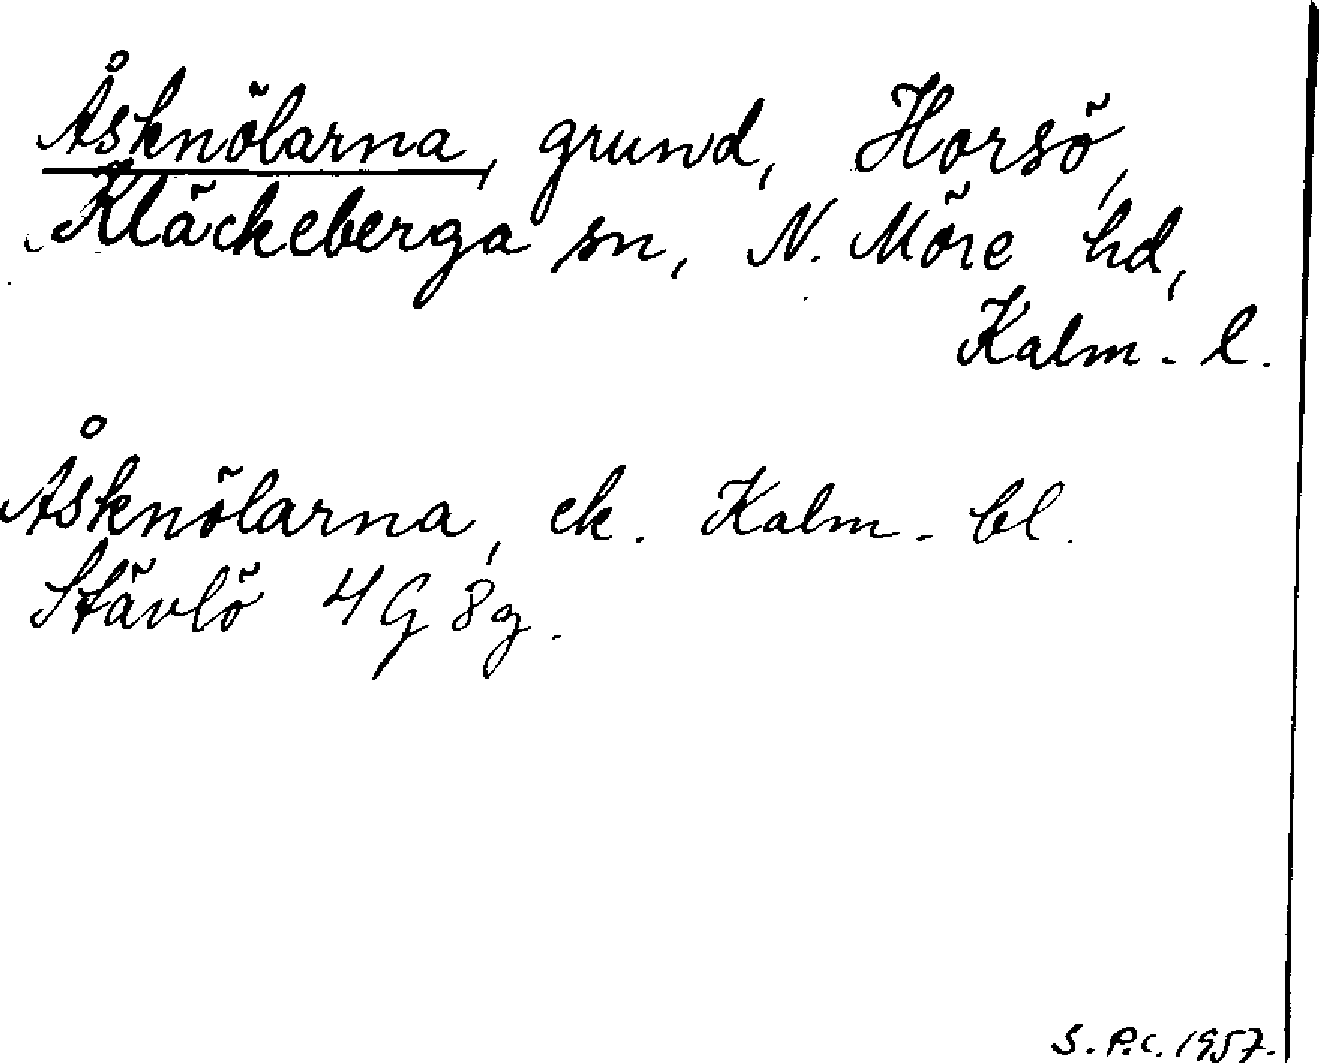 Åsknölarna, grund, Horsö,
Kläckeberga sn, N. Möre hd,
Kalm. l.
Åsknölarna, ek. Kalm. bl.
Stävlö 4G 8g.
S. P.C. 1957.